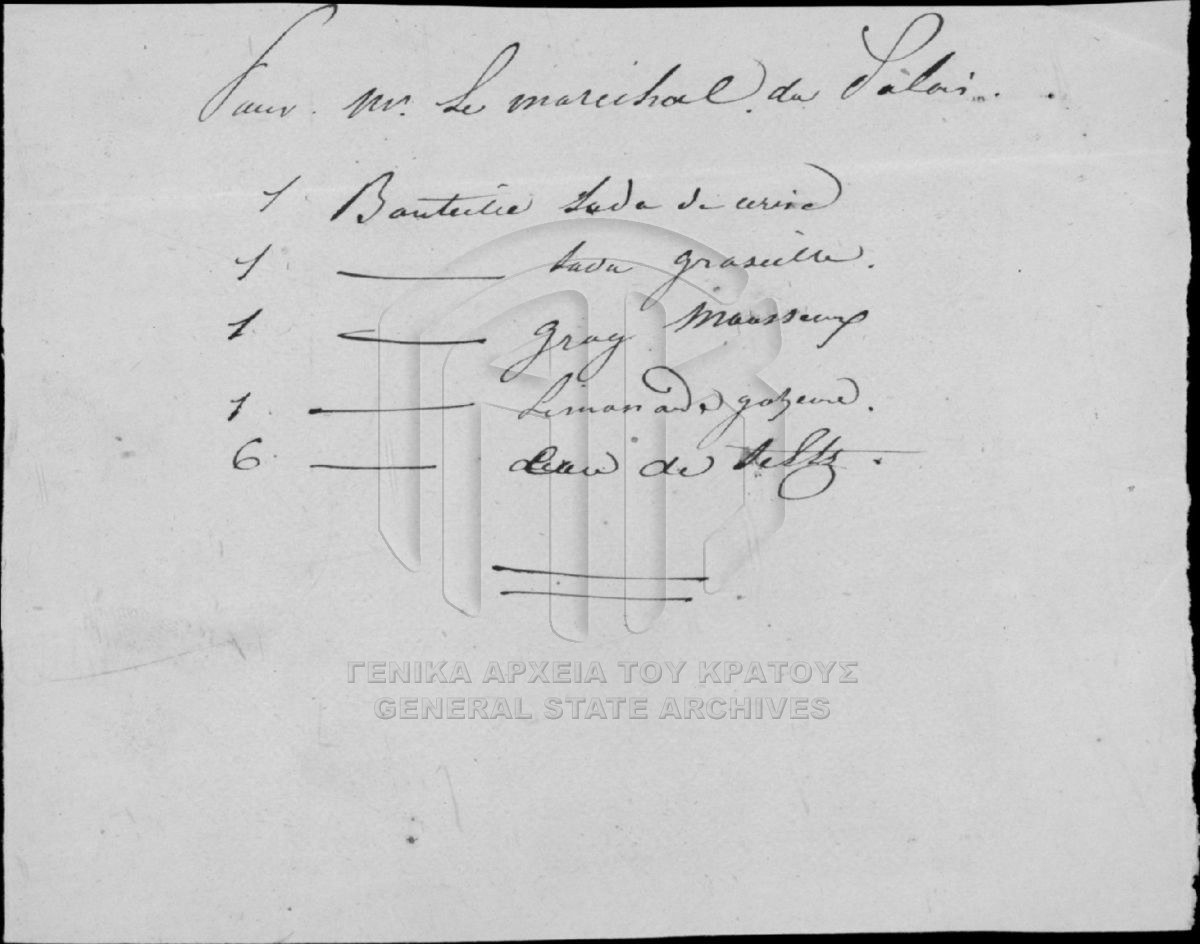 Pour mr. Le marechal du Palais.
1 Bouteille Soda de cerise
1 —— soda groseille.
1 —— grog Mousseux
1 —— Limonade gazeuse.
6 —— deau de Seltz.
ΓΕΝΙΚΑ ΑΡΧΕΙΑ ΤΟΥ ΚΡΑΤΟΥΣ
GENERAL STATE ARCHIVES